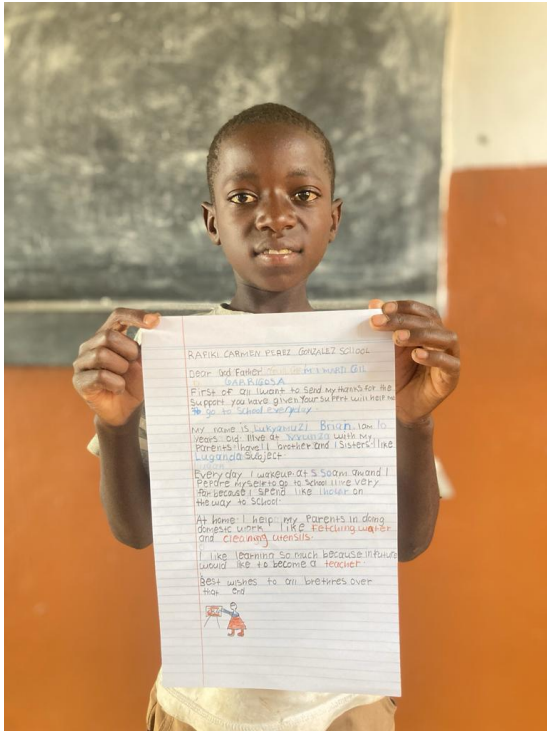 RAFIKI CARMEN PEREZ GONZALEZ SCHOOL
Dear God Father
GARRIGOSA
First of all I want to send my thanks for the
support you have given your support will help me
to go to school everyday.
My name is Lukyamuzi Brian. I am 10
years old. I live at with my
parents I have 1 brother and 1 sisters I like
Luganda subject.
Everyday I wakeup at 5:50am and I
Pepare myself to go to school I live very
far because I spend like 1hour on
the way to school.
At home I help my parents in doing
domestic work like fetching water
and cleaning utensils.
I like learning so much because in future
would like to become a teacher.
Best wishes to all brethres over
that end